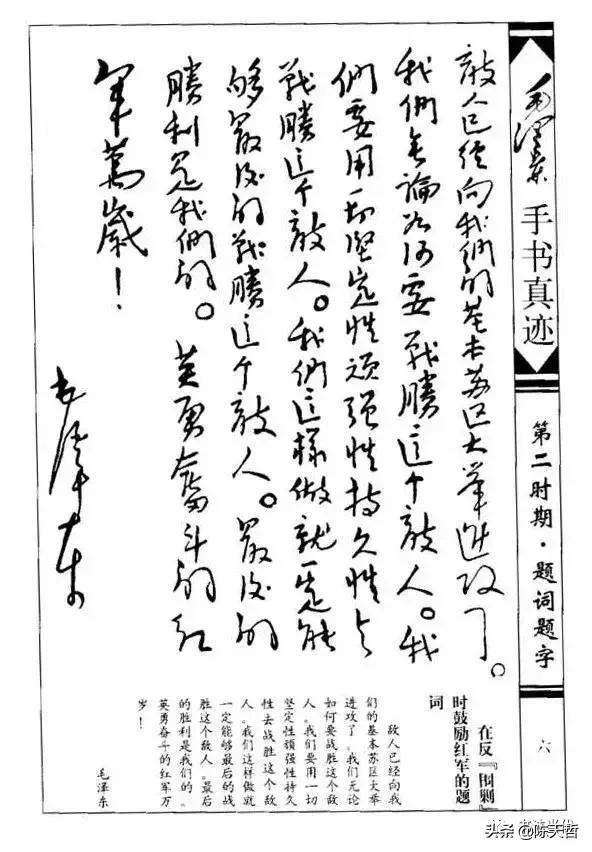 毛澤东
手书真迹
第二时期·题词题字
六
敵人已经向我们的基本苏区大举进攻了。
我們無論如何要战勝这个敵人。我
們要用一切坚定性顽强性持久性去
战勝这个敵人。我們这樣做就一定能
够最后的战勝这个敵人。最后的
勝利是我們的。英勇奮斗的红
军萬歲！
毛澤东
在反『围剿』
时鼓励红军的题
词
敌人已经向我
们的基本苏区大举
进攻了。我们无论
如何要战胜这个敌
人。我们要用一切
坚定性顽强性持久
性去战胜这个敌
人。我们这样做就
一定能够最后的战
胜这个敌人。最后
的胜利是我们的。
英勇奋斗的红军万
岁！
毛泽东
头条 @陈天哲